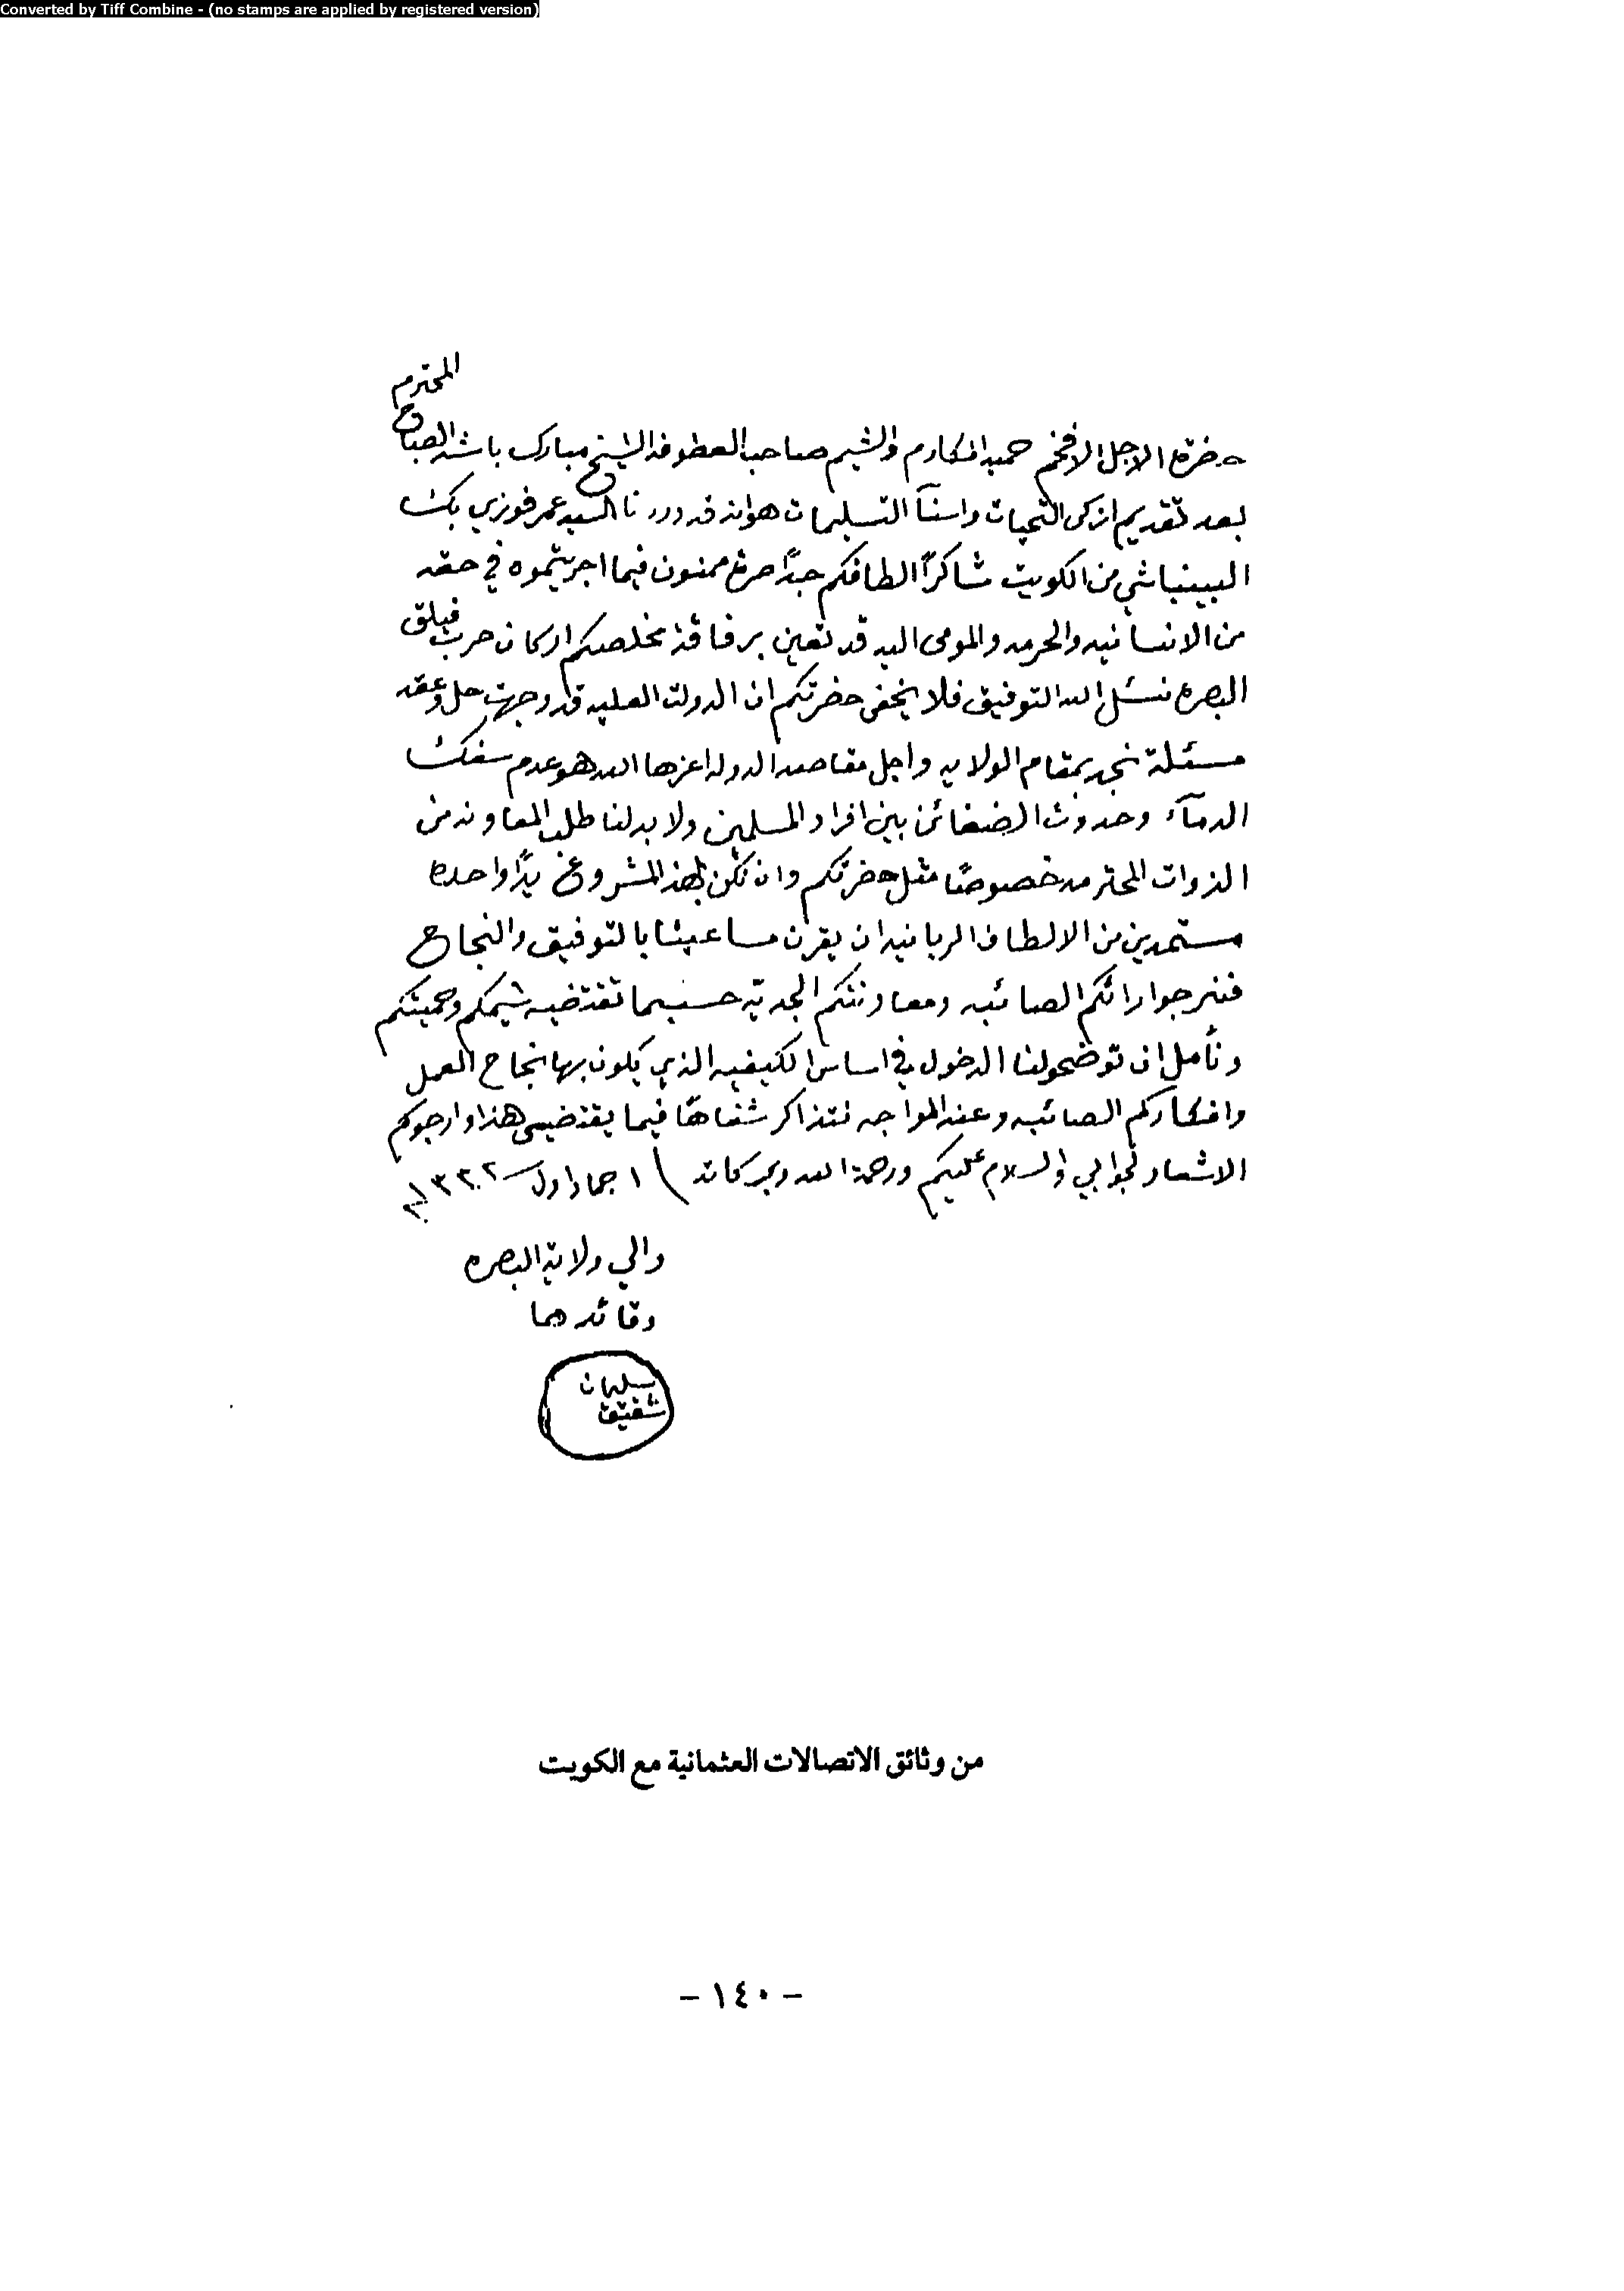 Converted by Tiff Combine - (no stamps are applied by registered version)
المحترم
حضرة الاجل الافخم حميد المكارم والشيم صاحب العطوفه الشيخ مبارك باشا الصباح
بعد تقديم ازكى التحيات واسنآ التسليمات هوانه قد وردنا السيد عمر فوزي بك
البينباشي من الكويت شاكرًا الطافكم جدًا صرنا ممنون فيما اجريتموه في حقه
من الانسانيه والحرمه والمومى اليه قد تعين برفاقة مخلصكم اركان حرب فيلق
البصره نسئل الله التوفيق فلا يخفى حضرتكم ان الدولت العليه قد وجهت حل وعقد
مسئلة نجد بمقام الولايه واجل مقاصد الدوله اعزها الله هو عدم سفك
الدمآء وحدوث الضغائن بين افراد المسلمين ولا بد لنا طلب المعاونه من
الذوات المحترمه خصوصًا مثل حضرتكم وان نكن لهذ المشروع يدًا واحده
مستمدين من الالطاف الربانيه ان يقرن مساعينا بالتوفيق والنجاح
فنرجوا رائكم الصائبه ومعاونتكم الجديّه حسبما تقتضيه شيمكم وحميتكم
ونأمل ان توضحولنا الدخول في اساس الكيفيه الذي يكون بها نجاح العمل
وافكاركم الصائبه وعند المواجه نتذاكر شفاهًا فيما يقتضي هذا وارجوكم
الاشعار بجوابي والسلام عليكم ورحمة الله وبركاته ١ جماد اول ١٣٣٢
والي ولاية البصره
وقائدها
سليمان
شفيق
من وثائق الاتصالات العثمانية مع الكويت
- ١٤٠ -